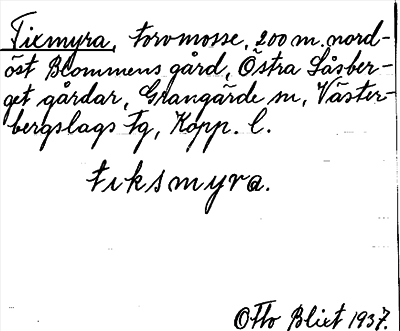 Tixmyra, torvmosse, 200 m. nord-
öst Blommens gård, Östra Låsber-
get gårdar, Grangärde sn, Väster-
bergslags tg, Kopp. l.
tiksmyra.
Otto Blixt 1937.